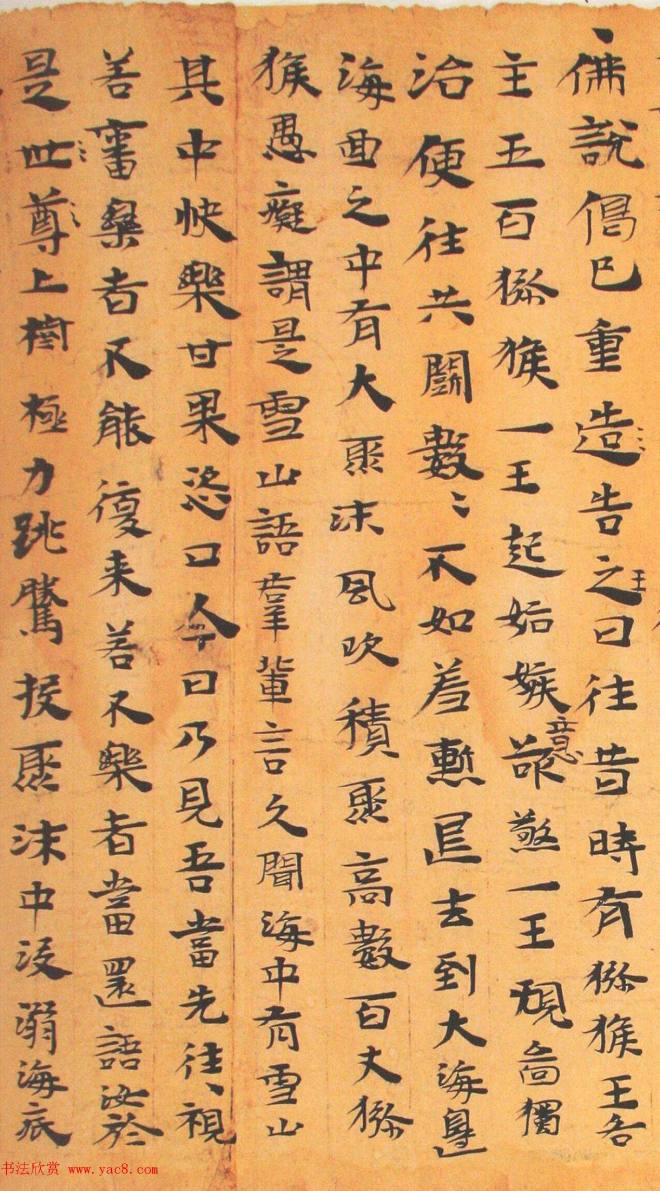 佛說偈已重造告之曰往昔時有獼猴王各
王
主五百獼猴一王起妬嫉欲煞一王規啚獨
意
治便往共鬪數〻不如羞慙退去到大海邊
海曲之中有大聚沫風吹積聚高數百丈獼
猴愚癡謂是雪山語羣輩言久聞海中有雪山
其中快樂甘果恣口今日乃見吾當先往視
善審樂者不能復来若不樂者當還語汝於
是世尊上樹極力跳騰投聚沫中没溺海底
书法欣赏 www.yac8.com